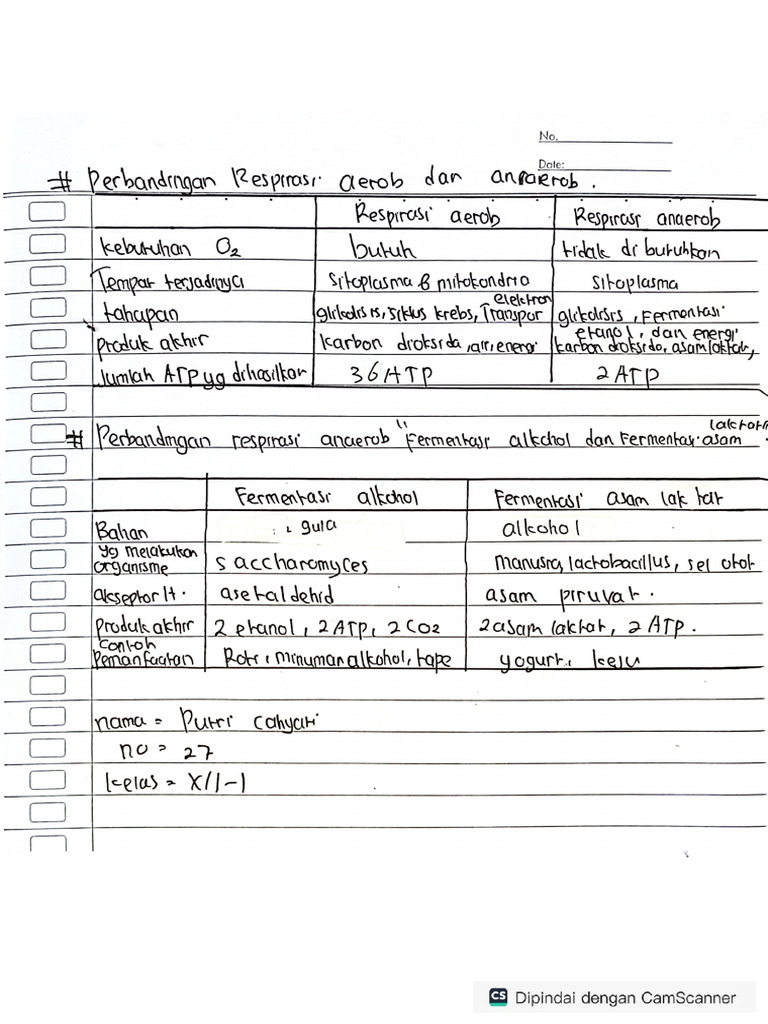 No.
Date:
# Perbandingan Respirasi aerob dan anaerob.
Respirasi aerob Respirasi anaerob
Kebutuhan O2 butuh tidak di butuhkan
Tempat terjadinya Sitoplasma & mitokondria Sitoplasma
tahapan glikolisis, siklus krebs, Transpor elektron glikolisis, Fermentasi
Produk akhir karbon dioksida, air, energi karbon dioksida, asam laktat, etanol, dan energi
Jumlah ATP yg dihasilkan 36 ATP 2 ATP
# Perbandingan respirasi anaerob "Fermentasi alkohol dan Fermentasi asam laktat
Fermentasi alkohol Fermentasi asam laktat
Bahan gula alkohol
Organisme yg melakukan saccharomyces manusia, lactobacillus, sel otot
akseptor asetaldehid asam piruvat.
Produk akhir 2 etanol, 2 ATP, 2 CO2 2 asam laktat, 2 ATP.
Contoh Pemanfaatan Roti, minuman alkohol, tape yogurt, keju
nama = Putri cahyati
no = 27
kelas = XII-1
CS Dipindai dengan CamScanner